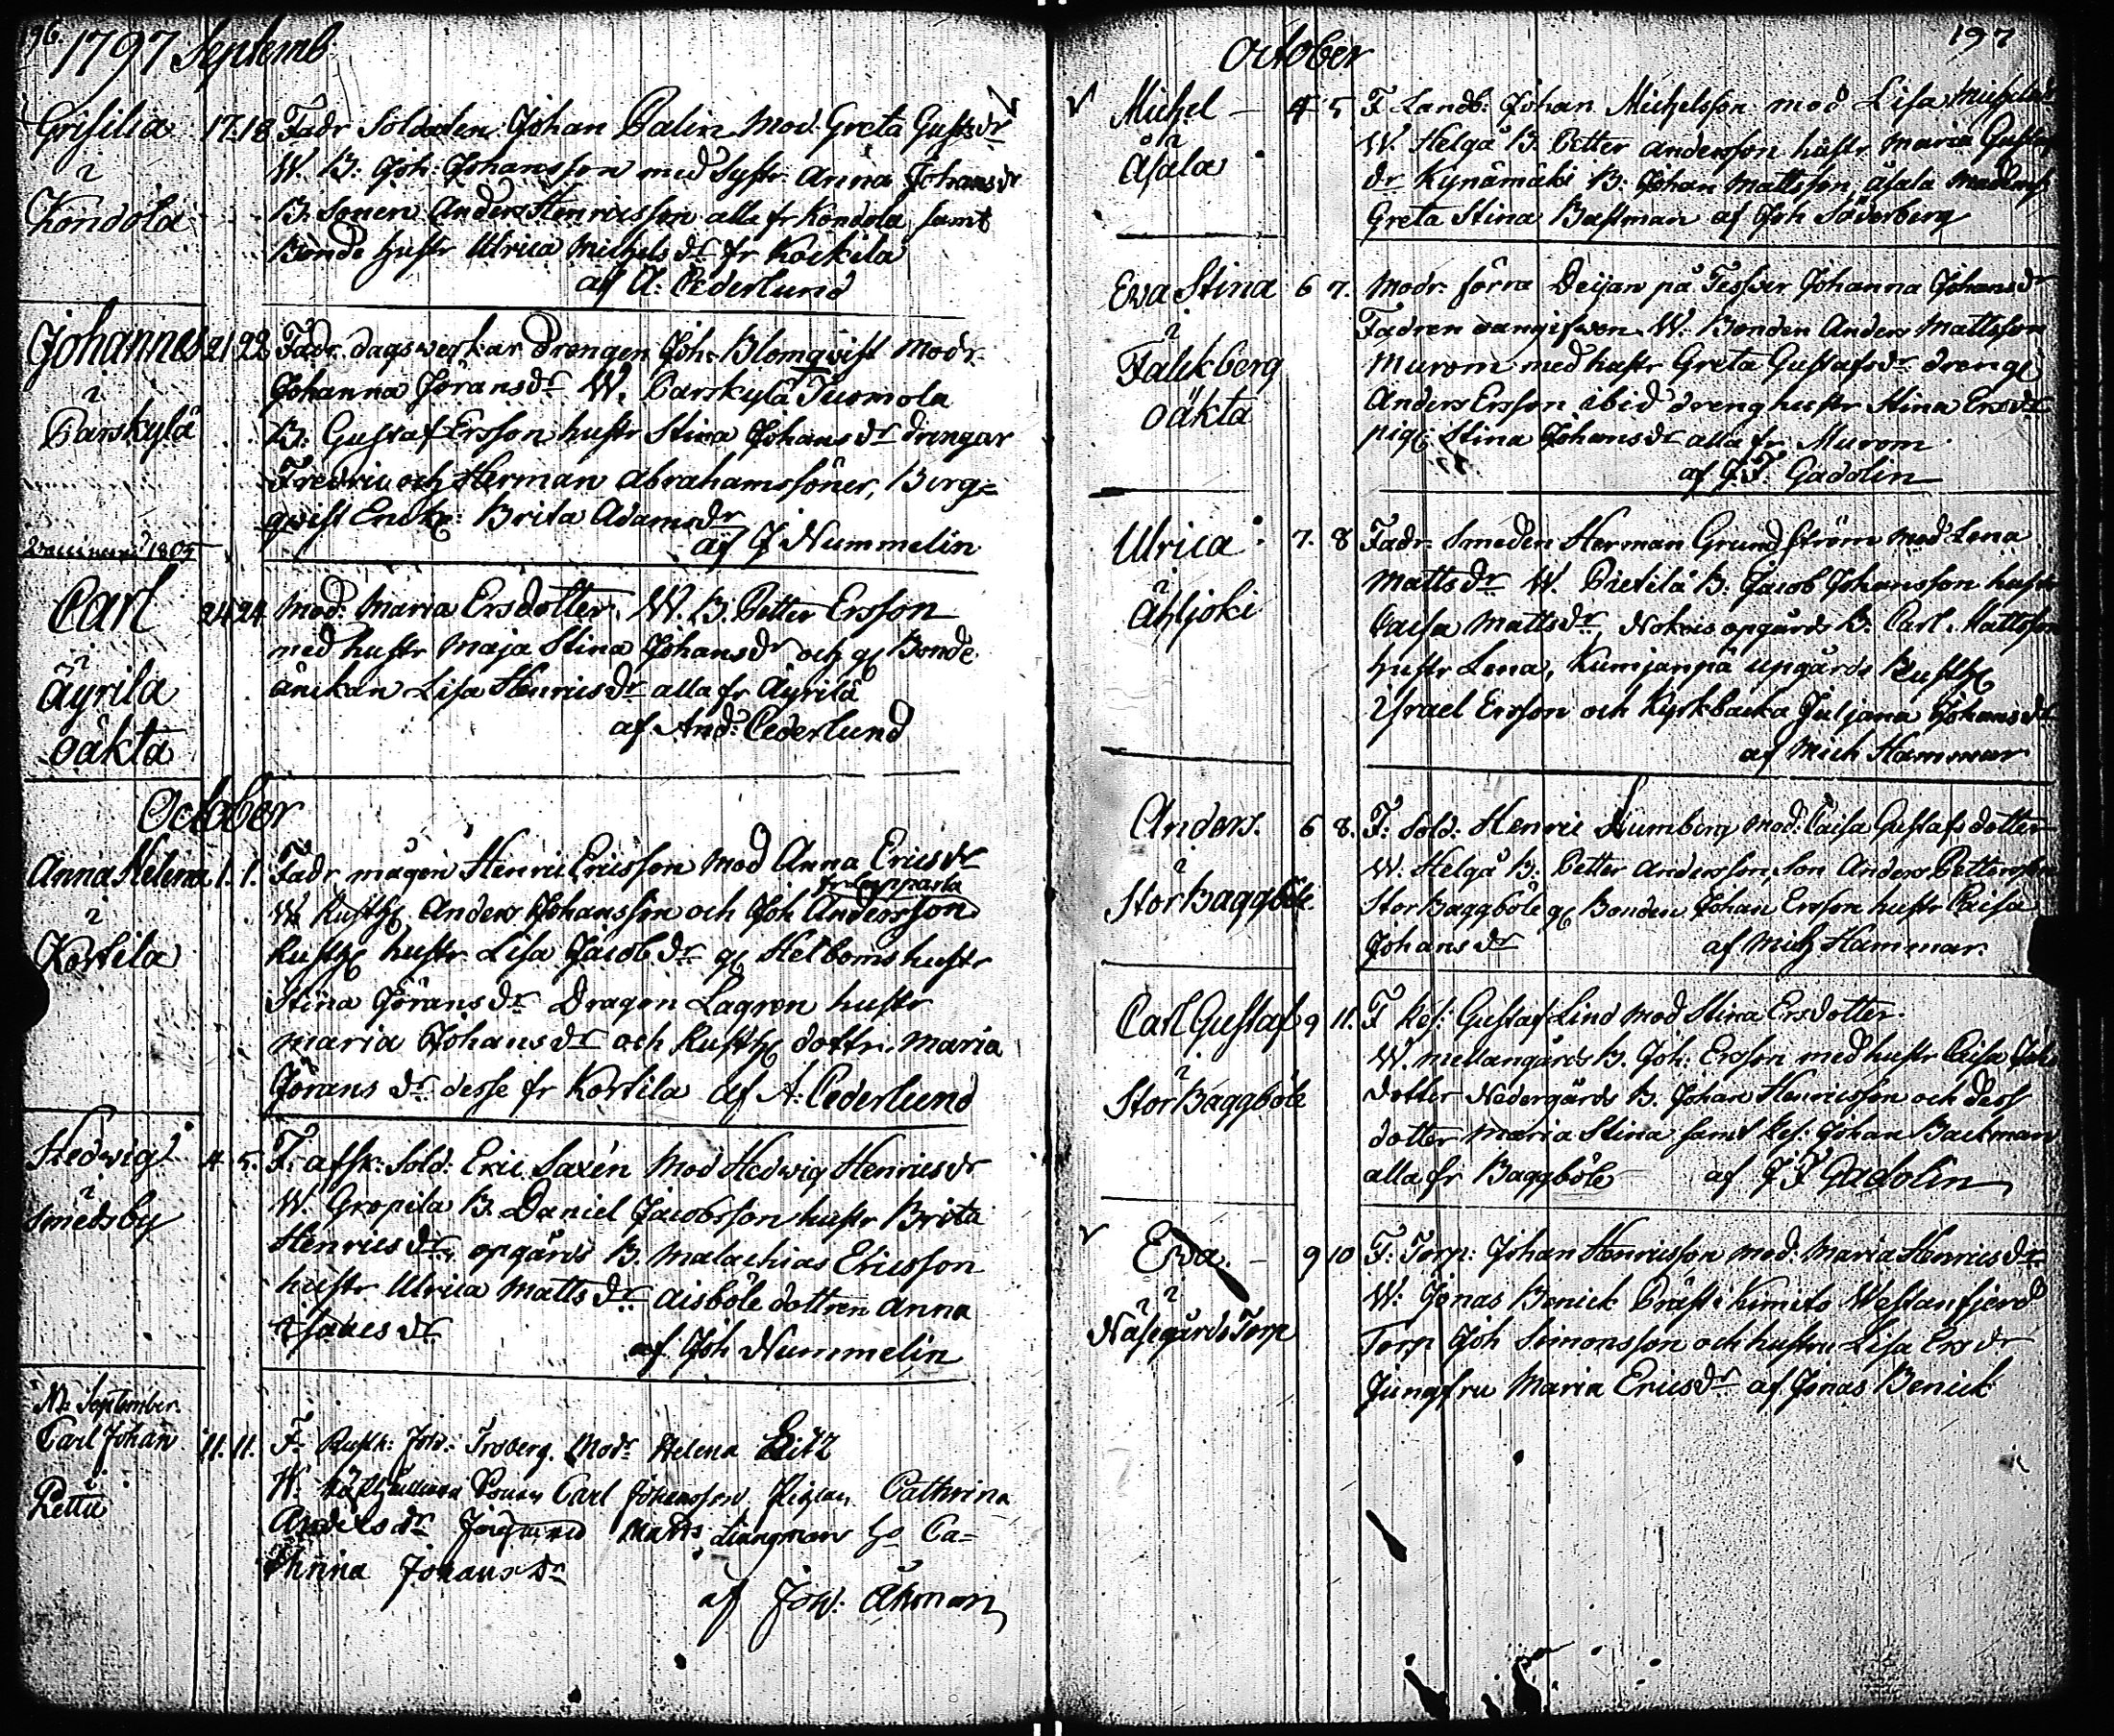 96.
1797 Septemb
Grisilia 17. 18 Fadr Soldaten Johan Palin Mod. Greta Gustsdr
i W. B: Joh: Johansson med Systr. Anna Johansdr
Kondola B. Sonen Anders Henricsson alla fr Kondola samt
Bonde hustr Ulrica Michelsdr fr Koikila
af A: Cederlund
Johannes 21 22 Fadr. dagsverkar Drengen Joh: Blomqvist Modr.
i Johanna Joransdr W. Parskylä Tuomola
Parskylä B: Gustaf Ersson hustr Stina Johansdr drengar
Fredric och Herman Abrahamssöner, Berg=
qwist Enka: Brita Adamsdr
1805 af J Nummelin
Carl 24 24 Mod: Maria Ersdotter. W. B. Petter Ersson
i med hustr Maja Stina Johansdr och g Bonde
Äyrila änckan Lisa Henricsdr alla fr Äyrilä
oäkta af And: Cederlund
October
Anna Helena 1. 1. Fadr mågen Henric Ericsson Mod Anna Ericsdr
i W. Rusth Anders Johansson och Joh Andersson
Kortila Rusth hustr. Lisa Jacobdr g Helboms hustr
Stina Jöransdr Dragon Lagren hustr
Maria Johansdr och Rusth dottr. Maria
Jöransdr desse fr Kortila af A: Cederlund
Hedwig 4. 5. F: afsk: Sold: Eric Saxén Mod Hedwig Henricsdr
i W. Gropila B. Daniel Jacobsson hustr Brita
Smedsby Henricsdr opgårds B. Malachias Ericsson
hustr Ulrica Mattsdr Aisböle dottren Anna
Isaacsdr af Joh Nummelin
September
Carl Johan 11. 11. F. Rusth: Joh: Troberg. Modr Helena Litz
i W. Carl Johansson, Pigan Cathrina
Rettu Andersdr Matts Liungman Ca=
thrina Johansdr
af Joh: Åkman
October 197
Michel 4 5 F Landb: Johan Michelsson mod Lisa Michelsdr
i W. Helgå B. Petter Andersson hustr Maria Gustafs
Åsala dr Kynämäki B: Johan Mattsson, Åsala
Greta Stina Bastman af Joh Söderberg
Ewa Stina 6 7. Modr. förra Deijan på Tessver Johanna Johansdr
i Fadren oangifwen W. Bonden Anders Mattsson
Falckberg Murom med hustr Greta Gustafsdr dreng
oäkta Anders Ersson ibid dreng hustr Stina Ersdr
pig Stina Johansdr alla fr Murom
af J.F. Gadolin
Ulrica 7. 8 Fadr. Smeden Herman Grundström Mod Lena
i Mattsdr W. Pietilä B. Jacob Johansson hustr
Åhljoki Caisa Mattsdr, Nokois opgårds B. Carl Mattsson
hustr Lena, Kumjanpä upgårds Rusth
Israel Ersson och Kyrkbacka Juljana Johansdr
af Mich Hammar
Anders. 6 8. F: Sold: Henric Humberg Mod: Caisa Gustafsdotter
i W. Helgå B: Petter Andersson, Son Anders Pettersson
Stor Baggböle Stor Baggböle g Bonden Johan Ersson hustr Caisa
Johansdr af Mich Hammar.
Carl Gustaf 9 11. F Gustaf Lind Mod Stina Ersdotter.
i W. mellangårds B. Joh: Ersson med hustr Caisa Joh
Stor Baggböle dotter Nedergårds B. Johan Henricsson och dess
dotter Maria Stina samt Johan Backman
alla fr Baggböle af J F Gadolin
Ewa. 9 10 F: Torp: Johan Henricsson Mod: Maria Henricsdr
i W: Jonas Benick Präst i Kimito Westanfjerd
Näsegårds Torp Torp Joh Simonsson och hustru Lisa Ersdr
Jungfru Maria Ericsdr af Jonas Benick